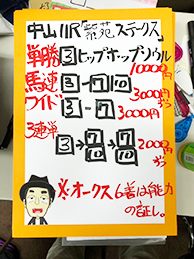 中山11R「紫苑ステークス」
単勝 3 ヒップホップソウル
10000円
馬連 3-7 10
3000円ずつ
ワイド 3-7
3000円
3連単
3→7 10→7 10
2000円ずつ
※オークス6着は能力
の証し。